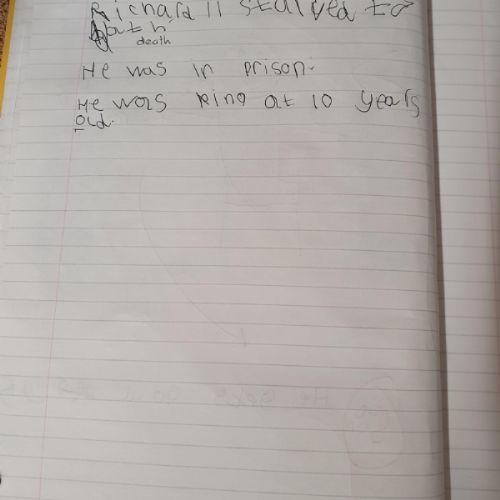 Richard II starved to
death
He was in prison.
He was king at 10 years
old.